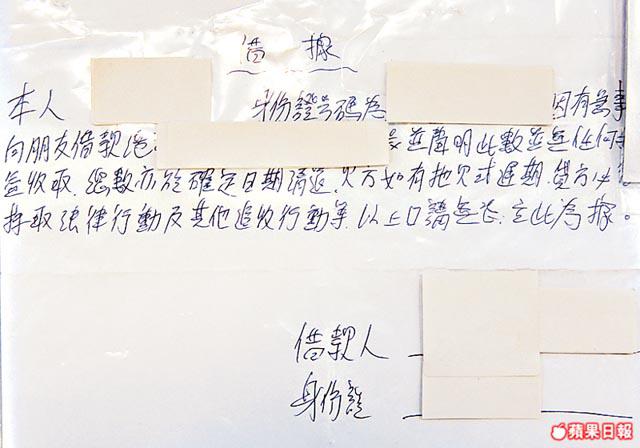 借據
本人 身份證號碼為 因有急事
向朋友借款港 並聲明此數並無任何
益收取.您數亦於確定日期清還.欠方如有拖欠或過期.貸方必
採取法律行動及其他追收行動等.以上口講無憑.立此為據。
借款人
身份證
蘋果日報